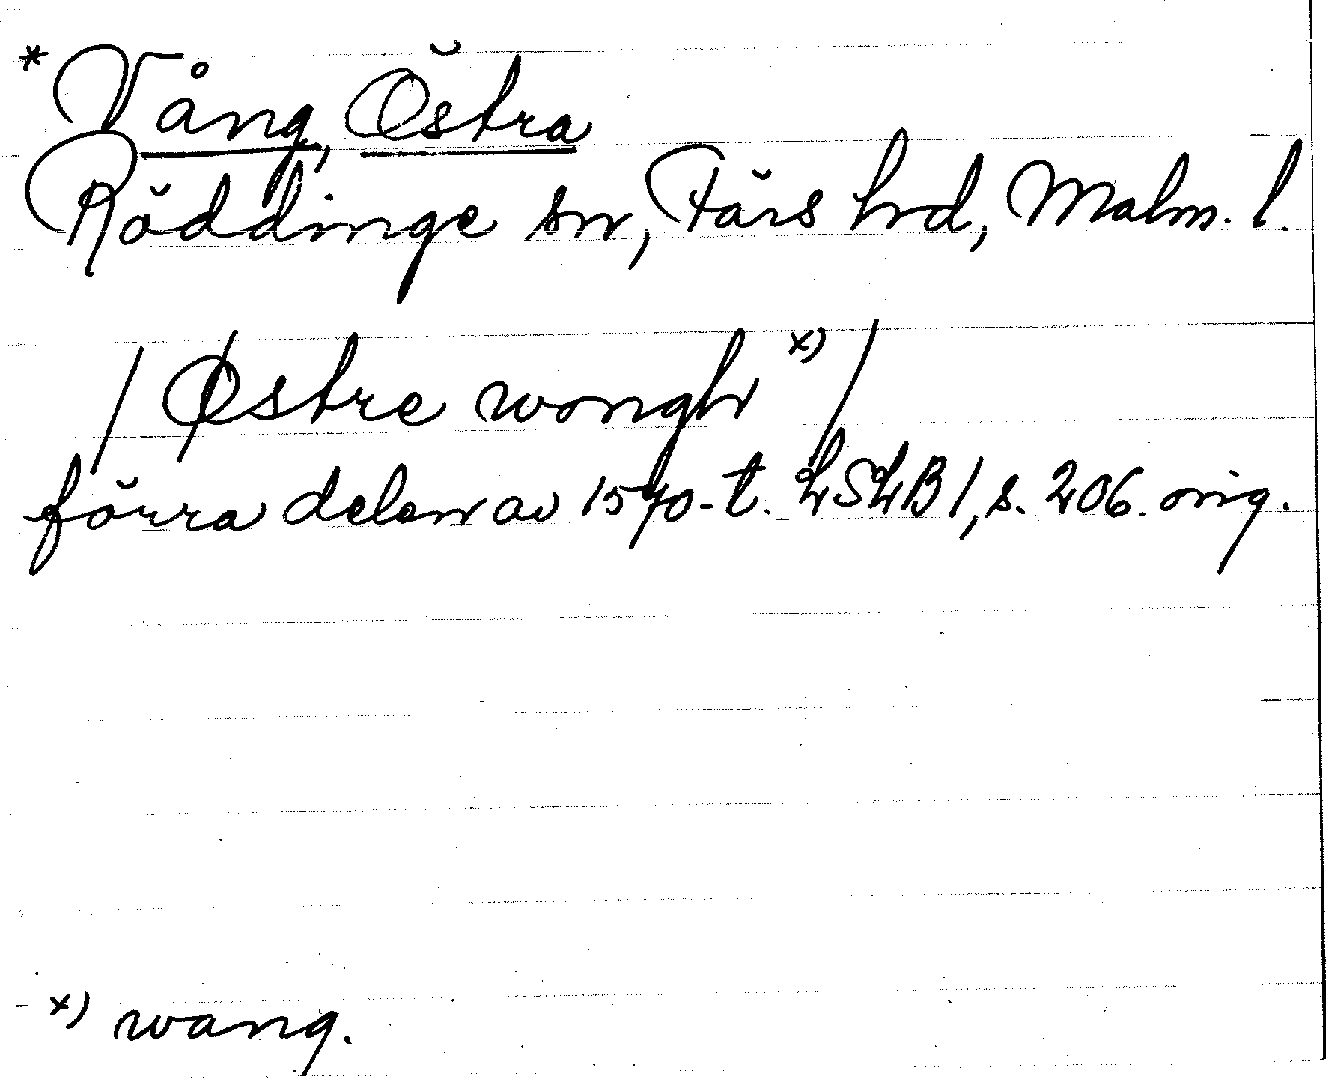 * Vång, Östra
Röddinge sn, Färs hrd, Malm. l.
/ Østre wongh x) /
förra delen av 1570-t. LSLB 1, s. 206. orig.
x) wang.